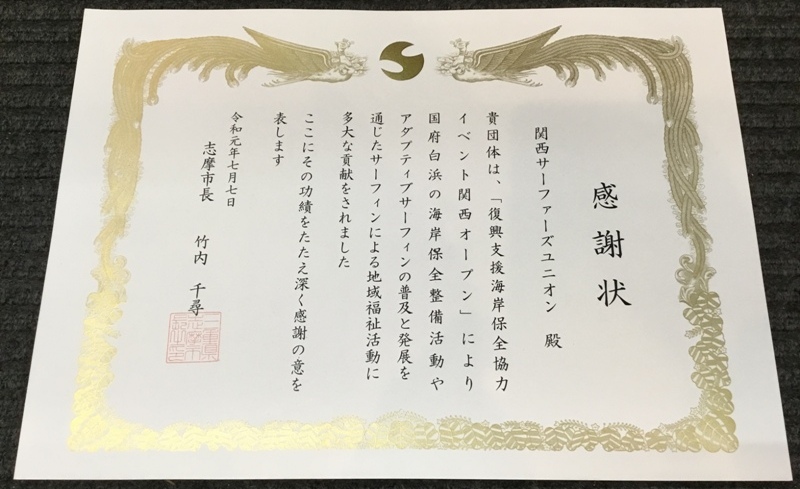 感謝状
関西サーファーズユニオン 殿
貴団体は、「復興支援海岸保全協力
イベント関西オープン」により
国府白浜の海岸保全整備活動や
アダプティブサーフィンの普及と発展を
通じたサーフィンによる地域福祉活動に
多大な貢献をされました
ここにその功績をたたえ深く感謝の意を
表します
令和元年七月七日
志摩市長 竹内 千尋